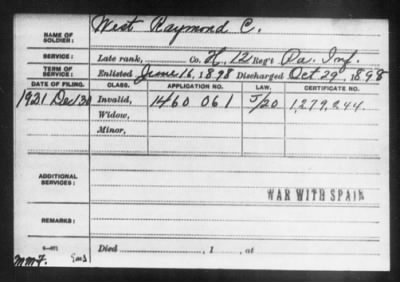 NAME OF SOLDIER: West Raymond C.
SERVICE: Late rank, Co. H, 12 Reg't Pa. Inf.
TERM OF SERVICE: Enlisted June 16, 1898 Discharged Oct 29, 1898
DATE OF FILING. CLASS. APPLICATION NO. LAW. CERTIFICATE NO.
1921 De 30 Invalid, 1460 061 J/20 1,279,244
Widow,
Minor,
ADDITIONAL SERVICES:
WAR WITH SPAIN
REMARKS:
Died , 1 , at